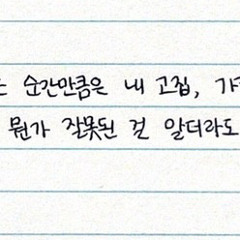 순간만큼은 내 고집,
뭔가 잘못된 걸 알더라도